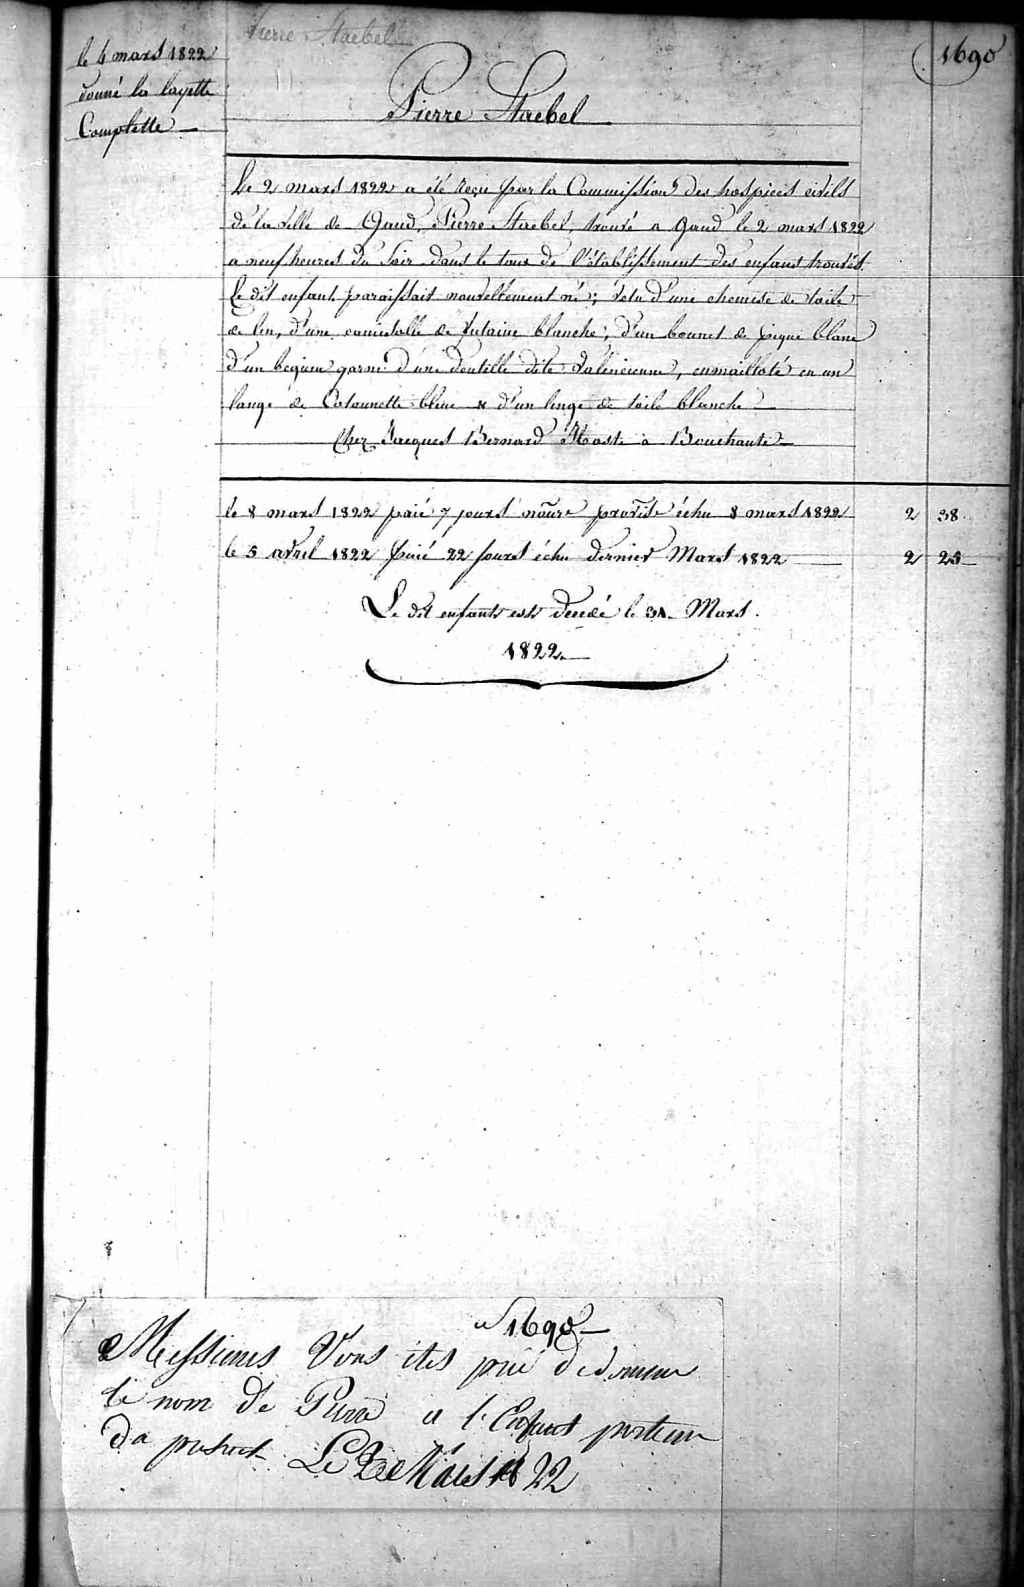 Pierre Staebel
1690
le 4 mars 1822
donné la layette
Complette
Pierre Staebel
Le 2 mars 1822 a été reçu par la Commission des hospices civils
de la ville de Gand, Pierre Staebel, trouvé a Gand le 2 mars 1822
a neuf heures du soir dans le tour de l'établissement des enfans trouvés.
Le dit enfant paraissait nouvellement né; vetu d'une chemise de toile
de lin, d'une camisolle de futaine blanche; d'un bonnet de piqué blanc
d'un béguin garni d'une dentelle dite Valencienne, emmailloté en un
lange de Cotonnette bleue & d'un linge de toile blanche
Chez Jacques Bernard Maste à Bouchaute
le 8 mars 1822 paié 7 jours nourre provis̃e échu 8 mars 1822 2 38
le 5 avril 1822 paié 22 jours échu dernier Mars 1822 2 25
Le dit enfants est decedé le 31 Mars
1822
n 1690
Messieurs Vous etes prié de donner
le nom de Pierre a l'Enfant porteur
du present Le 2 de Mars 1822